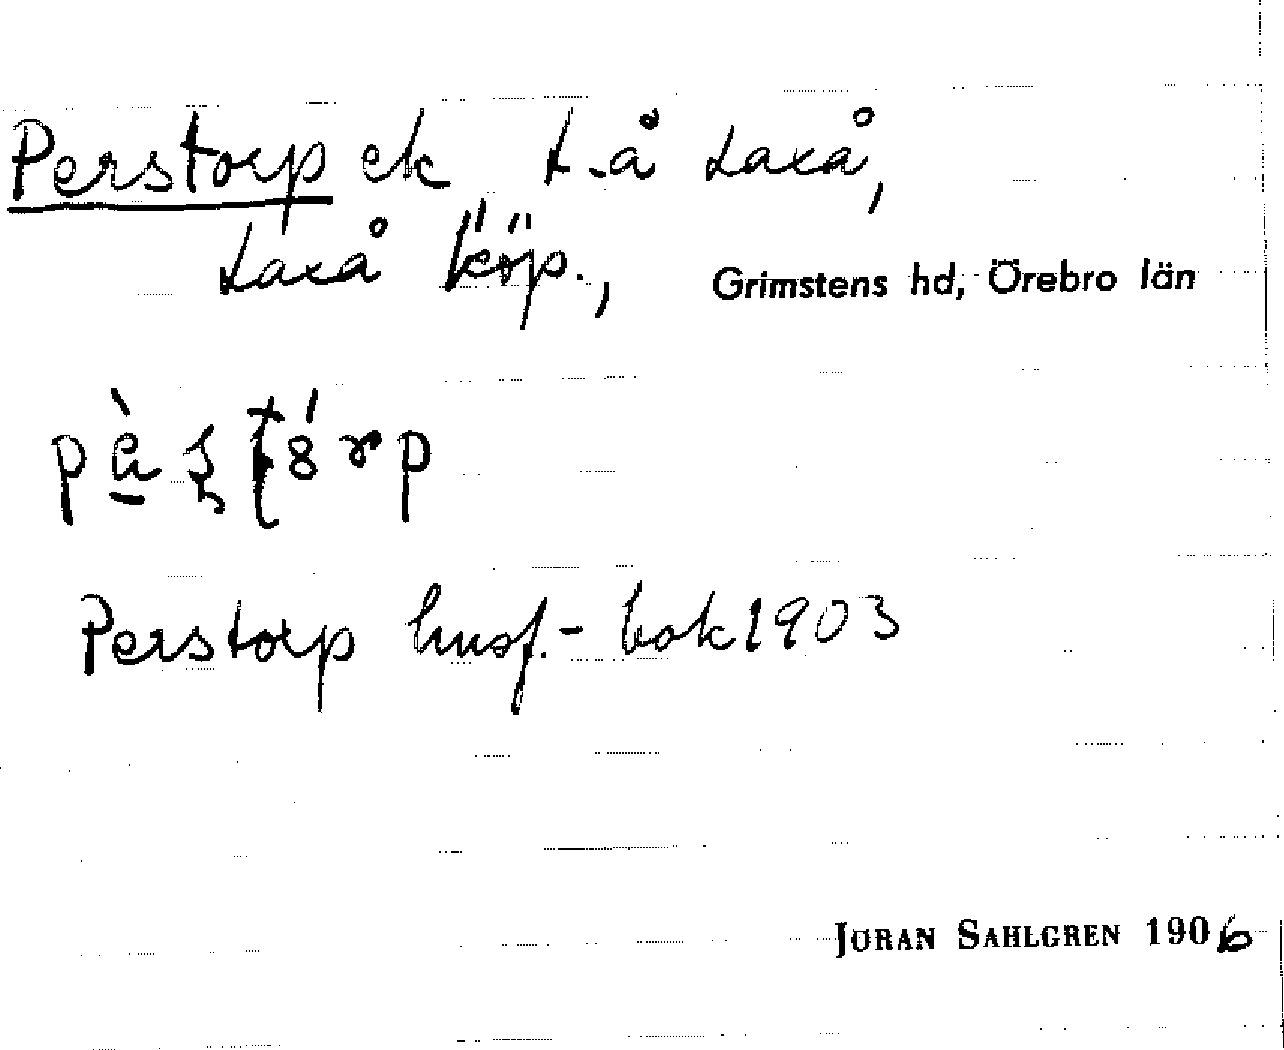 Perstorp ek t. å Laxå,
Laxå köp., Grimstens hd, Örebro län
Perstorp husf.-bok 1903
JÖRAN SAHLGREN 1906